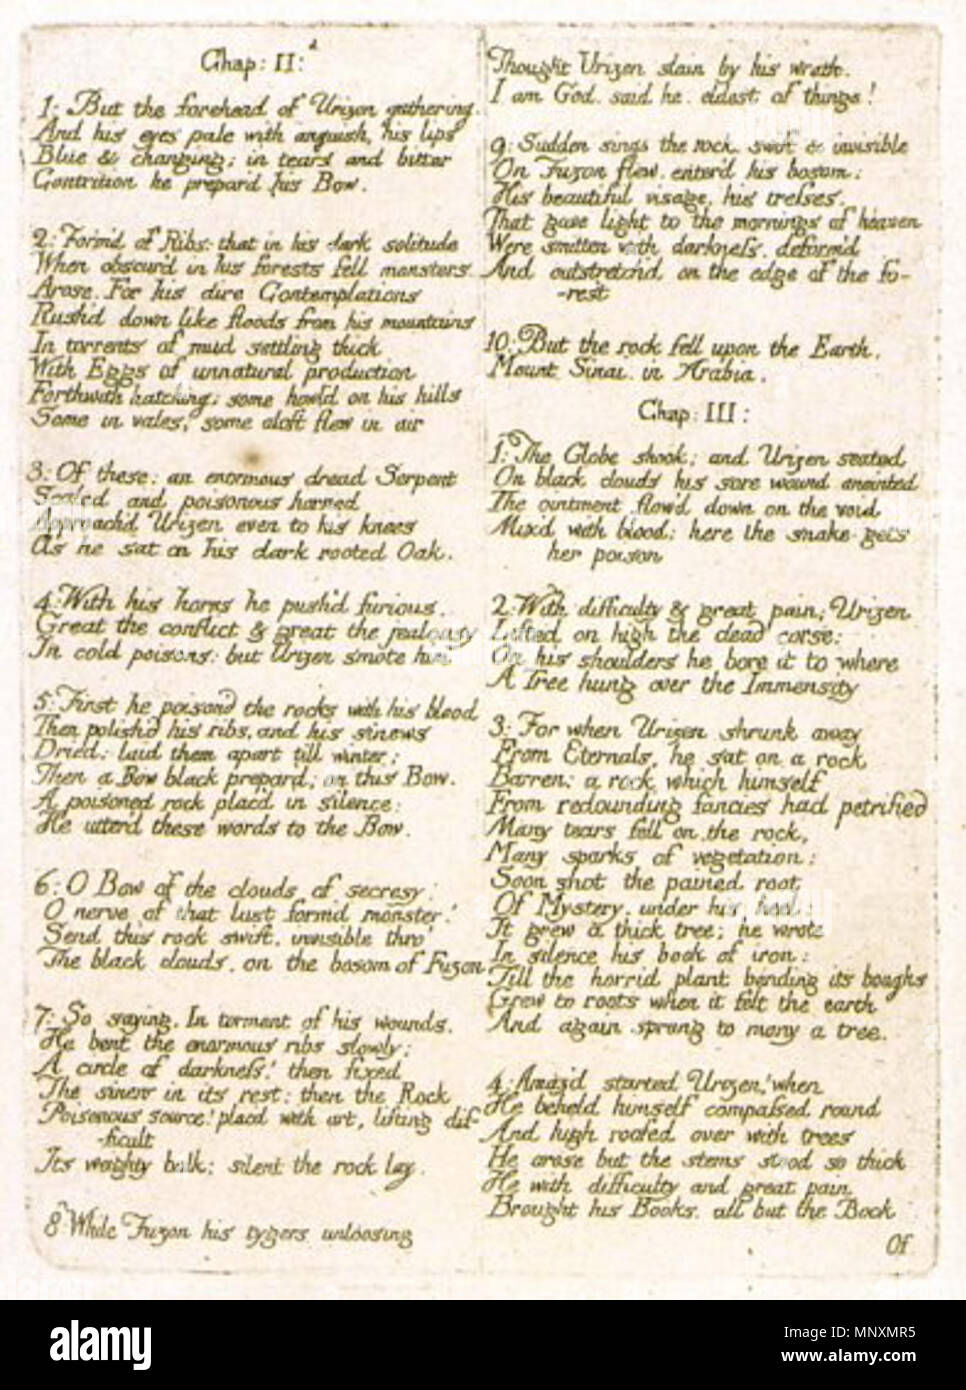 Chap: II:d
1: But the forehead of Urizen gathering,
And his eyes pale with anguish, his lips
Blue & changing; in tears and bitter
Contrition he prepar'd his Bow.
2: Form'd of Ribs: that in his dark solitude
When obscur'd in his forests fell monsters
Arose. For his dire Contemplations
Rush'd down like floods from his mountains
In torrents of mud settling thick
With Eggs of unnatural production
Forthwith hatching; some howl'd on his hills
Some in vales; some aloft flew in air
3: Of these: an enormous dread Serpent
Scaled and poisonous horned
Approach'd Urizen even to his knees
As he sat on his dark rooted Oak.
4: With his horns he push'd furious.
Great the conflict & great the jealousy
In cold poisons: but Urizen smote him
5: First he poison'd the rocks with his blood
Then polish'd his ribs, and his sinews
Dried; laid them apart till winter;
Then a Bow black prepar'd; on this Bow.
A poisoned rock plac'd in silence:
He utter'd these words to the Bow.
6: O Bow of the clouds of secresy!
O nerve of that lust form'd monster!
Send this rock swift, invisible thro'
The black clouds, on the bosom of Fuzon
7: So saying, In torment of his wounds.
He bent the enormous ribs slowly;
A circle of darkness! then fixed
The sinew in its rest: then the Rock
Poisonous source! plac'd with art, lifting dif-
-ficult
Its weighty bulk: silent the rock lay.
8: While Fuzon his tygers unloosing
Thought Urizen slain by his wrath.
I am God. said he, eldest of things!
9: Sudden sings the rock, swift & invisible
On Fuzon flew, enter'd his bosom;
His beautiful visage, his tresses,
That gave light to the mornings of heaven
Were smitten with darkness, deform'd
And outstretch'd on the edge of the fo-
-rest
10: But the rock fell upon the Earth,
Mount Sinai, in Arabia.
Chap: III:
1: The Globe shook; and Urizen seated
On black clouds his sore wound anointed
The ointment flow'd down on the void
Mix'd with blood; here the snake gets
her poison
2: With difficulty & great pain; Urizen
Lifted on high the dead corse:
On his shoulders he bore it to where
A Tree hung over the Immensity
3: For when Urizen shrunk away
From Eternals, he sat on a rock
Barren; a rock which himself
From redounding fancies had petrified
Many tears fell on the rock,
Many sparks of vegetation;
Soon shot the pained root
Of Mystery, under his heel:
It grew a thick tree; he wrote
In silence his book of iron:
Till the horrid plant bending its boughs
Grew to roots when it felt the earth
And again sprung to many a tree.
4: Amaz'd started Urizen! when
He beheld himself compassed round
And high roofed over with trees
He arose but the stems stood so thick
He with difficulty and great pain
Brought his Books, all but the Book
Of
alamy
Image ID: MNXMR5
www.alamy.com